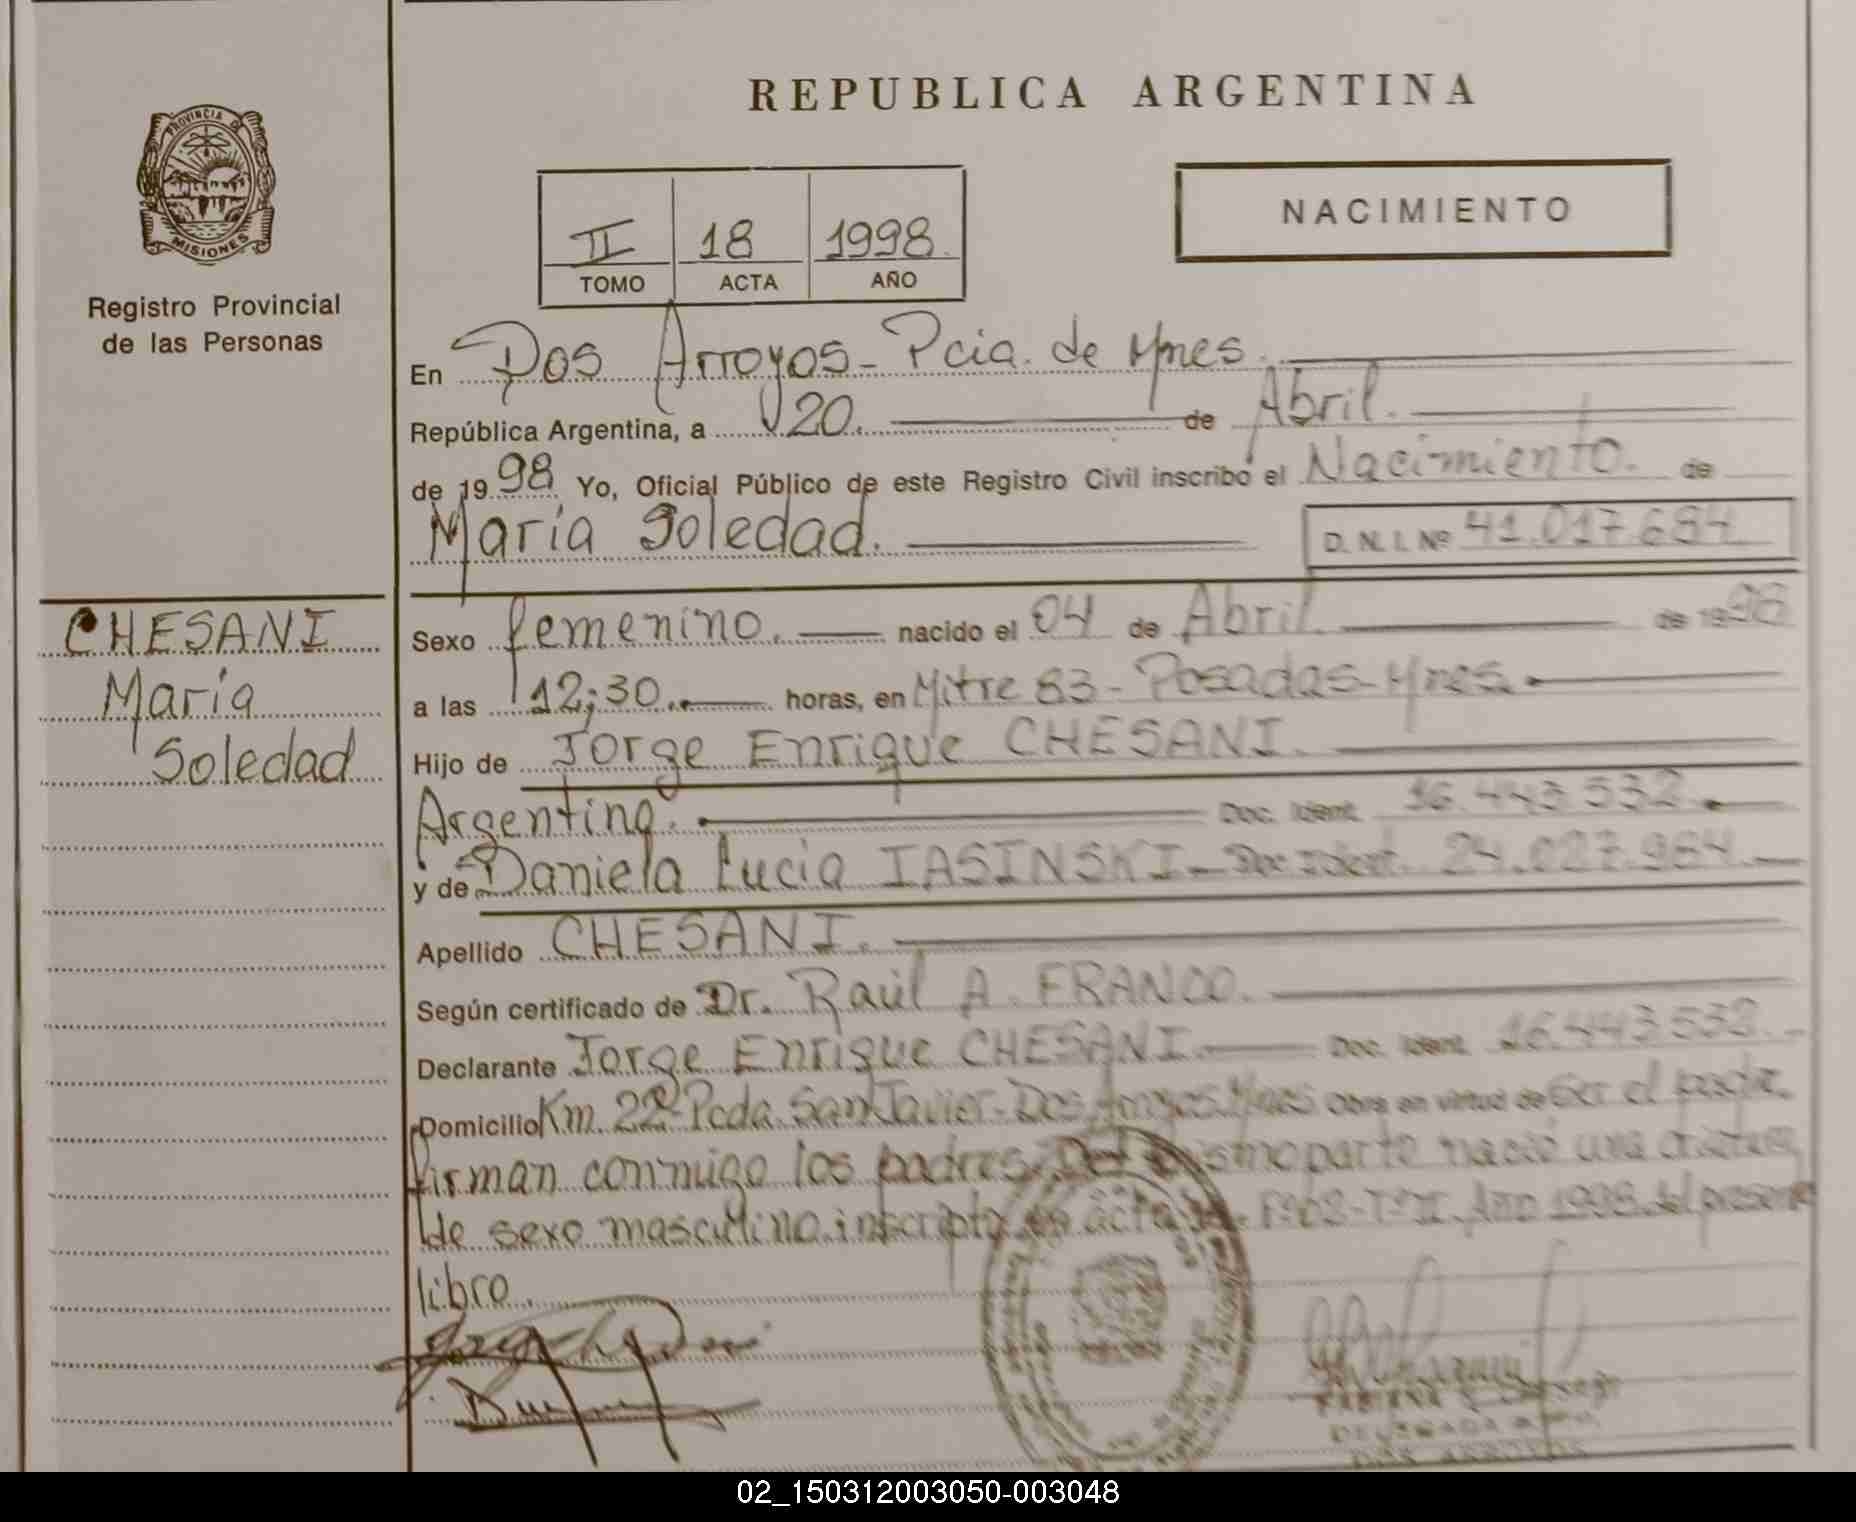 REPUBLICA ARGENTINA
PROVINCIA DE
MISIONES
Registro Provincial
de las Personas
II 18 1998
TOMO ACTA AÑO
NACIMIENTO
En Dos Arroyos - Pcia. de Mnes.
República Argentina, a 20. de Abril.
de 1998 Yo, Oficial Público de este Registro Civil inscribo el Nacimiento. de
María Soledad. D. N. I. Nº 41.017.684
CHESANI
María
Soledad
Sexo femenino. nacido el 04 de Abril de 1998
a las 12;30. horas, en Mitre 83 - Posadas - Mnes.
Hijo de Jorge Enrique CHESANI.
Argentino. Doc. Ident. 16.443.532.
y de Daniela Lucia IASINSKI - Doc. Ident. 24.027.984.
Apellido CHESANI.
Según certificado de Dr. Raúl A. FRANCO.
Declarante Jorge Enrique CHESANI. Doc. Ident. 16.443.532.
Domicilio Km. 22 Pcda. San Javier - Dos Arroyos. Mnes Obra en virtud de Ser el padre.
firman conmigo los padres. Del mismo parto nació una criatura
de sexo masculino. inscripta en acta Tº II. Año 1998. del presente
libro.
02_150312003050-003048